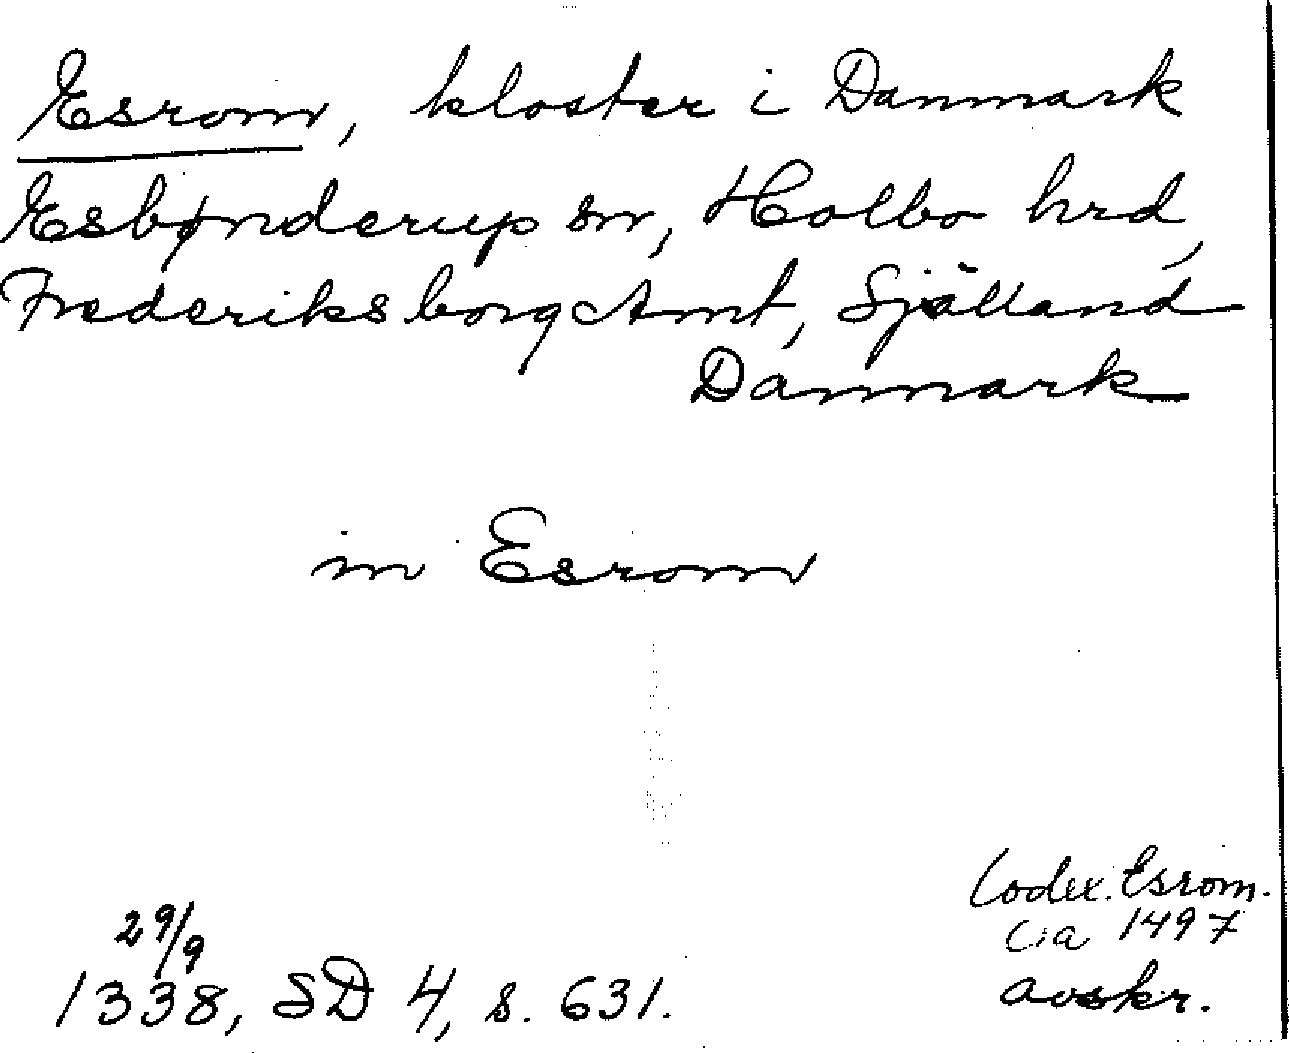 Esrom, kloster i Danmark
Esbønderup sn, Holbo hrd,
Frederiksborg Amt, Själland
Danmark
in Esrom
Codex. Esrom.
ca 1497
avskr.
29/9
1338, SD 4, s. 631.